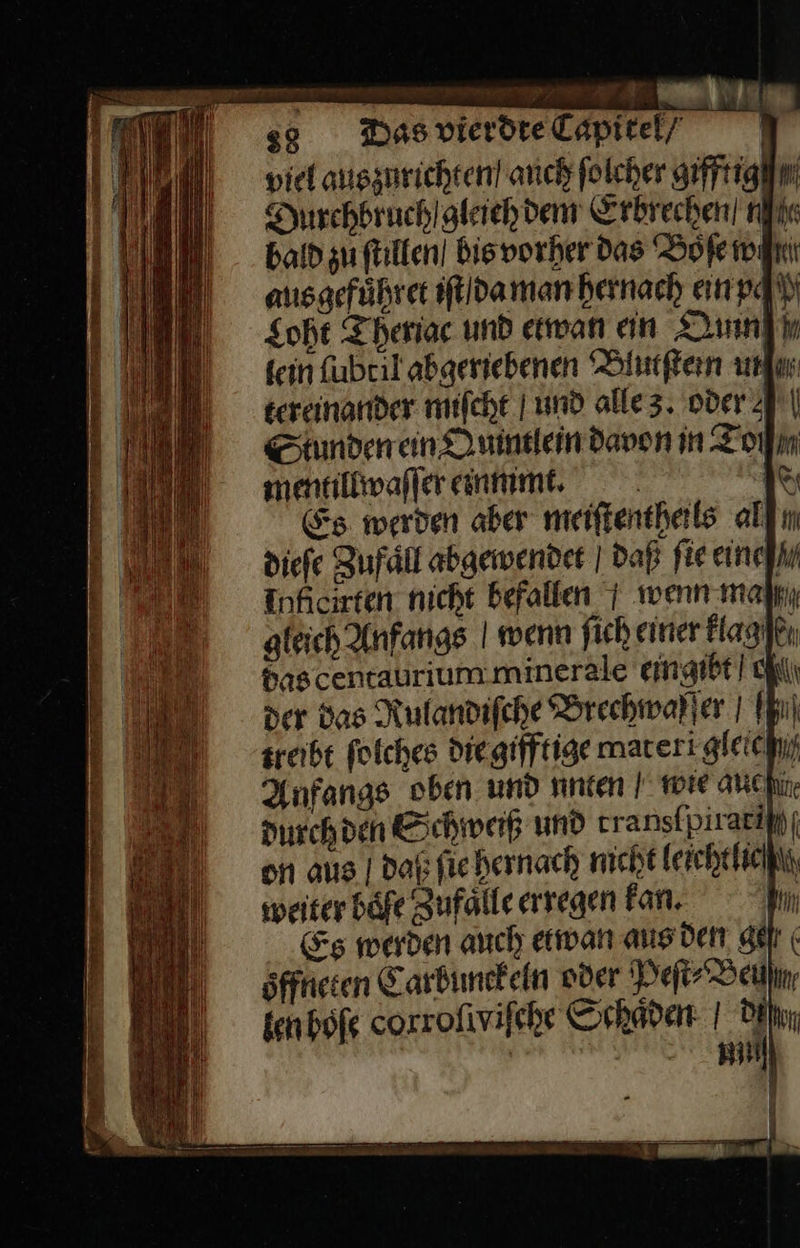 88 Das vierdte Capitel/
viel auszurichten/ auch ſolcher gifftig
Durchbruch/ gleich dem Erbrechen/ n
bald zu ſtillen/ bis vorher das Böſe w
ausgeführet iſt/ da man hernach ein pa
Loht Theriac und etwan ein Quint
lein ſubtil abgeriebenen Blutſtein un
tereinander miſcht / und alle 3. oder 4
Stunden ein Quintlein davon in Tor
mentillwaſſer einnimt.
Es werden aber meiſtentheils al
dieſe Zufäll abgewendet / daß ſie eine
Inficirten nicht befallen / wenn ma
gleich Anfangs / wenn ſich einer klagt
das centaurium minerale eingibt / o
der das Rulandiſche Brechwaſſer / ſo
treibt ſolches die gifftige materi gleich
Anfangs oben und unten / wie auch
durch den Schweiß und transſpirati
on aus / daß ſie hernach nicht leichtlich
weiter böſe Zufälle erregen kan.
Es werden auch etwan aus den ge
öffneten Carbunckeln oder Peſt-Beu
len böſe corroſiviſche Schäden / di